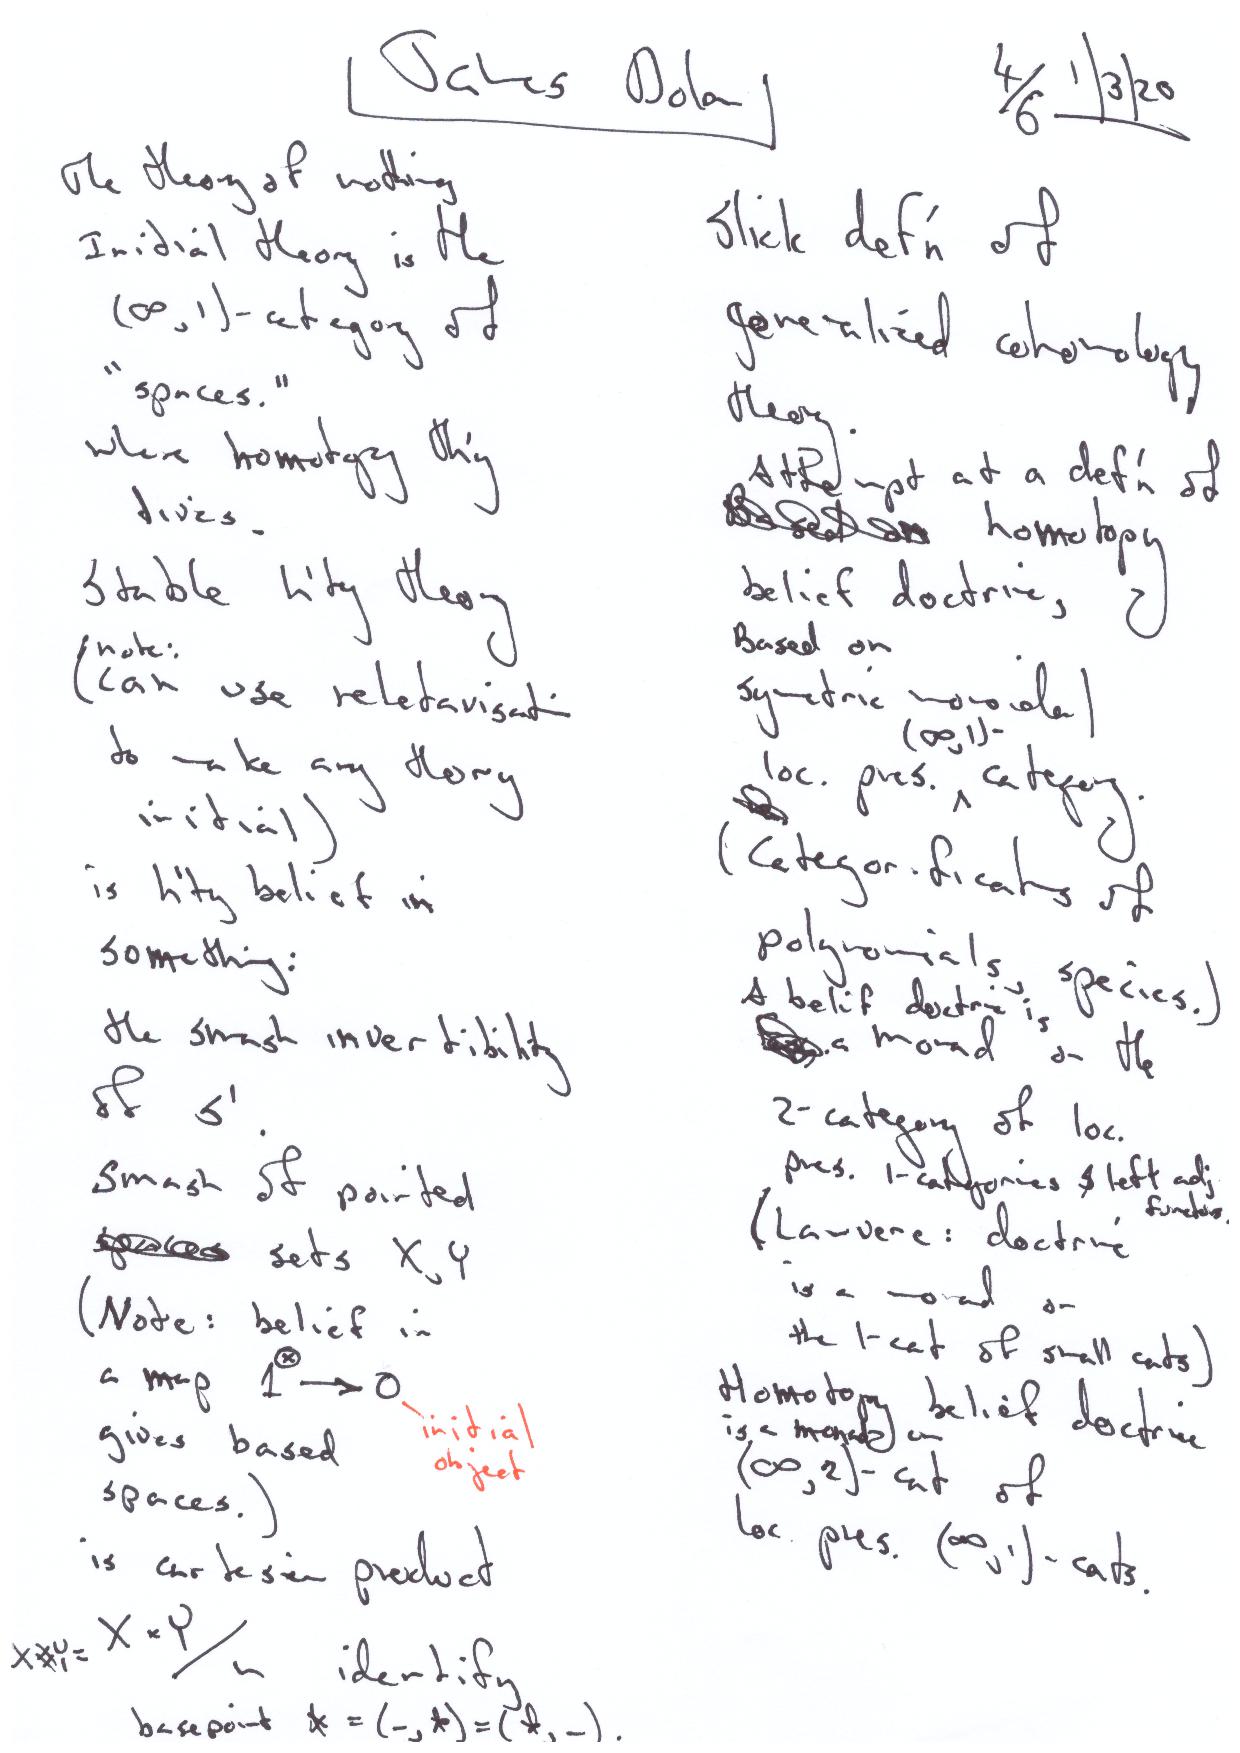 James Dolan
4/6 1/3/20
The theory of nothing
Initial theory is the
(∞,1)-category of
"spaces."
where homotopy th'y
lives.
Stable h'ty theory
(note:
can use reletavisati
to make any theory
initial)
is h'ty belief in
something:
the smash invertibility
of S¹.
Smash of pointed
sets X, Y
(Note: belief in
a map 1^⊗ → 0
initial
object
gives based
spaces.)
is cartesian product
X * Y = X × Y / ~ identify
basepoint * = (-, *) = (*, -).
Slick def'n of
generalized cohomology
theory.
Attempt at a def'n of
homotopy
belief doctrine,
Based on
symetric monoidal
(∞,1)-
loc. pres. ^ category.
(Categorifications of
polynomials, species.)
A belif doctrine is
a monad on the
2-category of loc.
pres. 1-categories & left adj
functors.
(Lawvere: doctrine
is a monad on
the 1-cat of small cats)
Homotopy belief doctrine
is a monad on
(∞,2)-cat of
loc. pres. (∞,1)-cats.